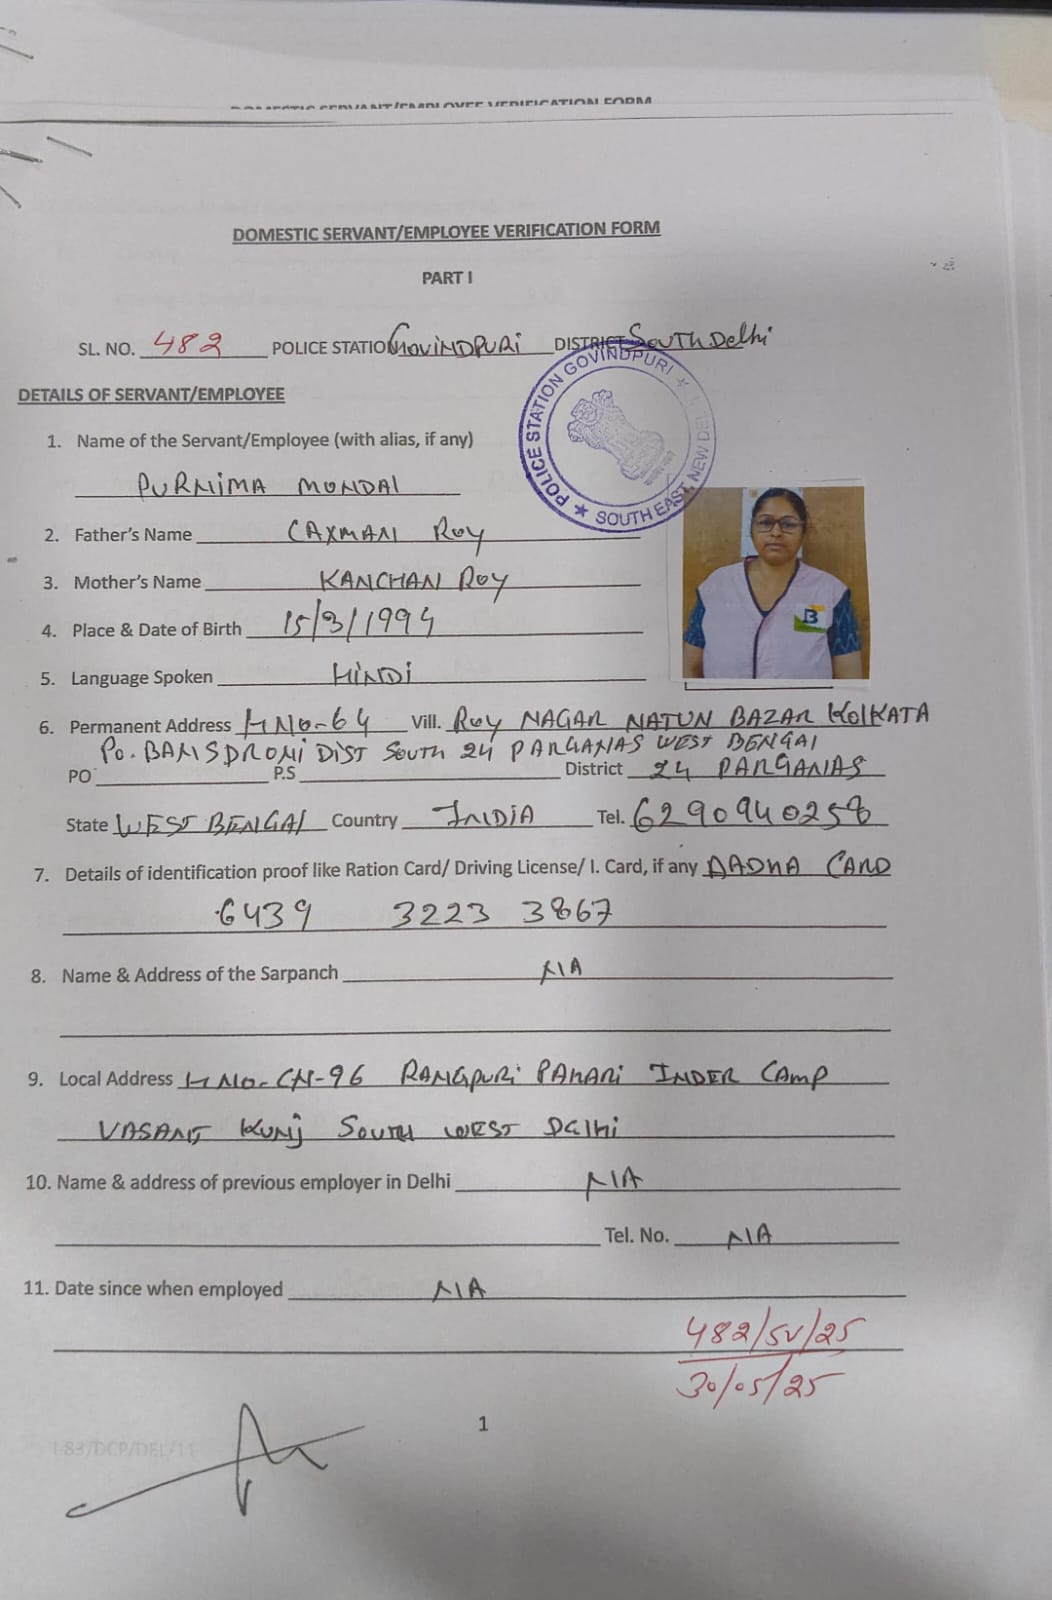 DOMESTIC SERVANT/EMPLOYEE VERIFICATION FORM
DOMESTIC SERVANT/EMPLOYEE VERIFICATION FORM
PART I
SL. NO. 482 POLICE STATION GOVINDPURI DISTRICT SOUTH Delhi
POLICE STATION GOVINDPURI ★ SOUTH EAST, NEW DELHI ★
DETAILS OF SERVANT/EMPLOYEE
1. Name of the Servant/Employee (with alias, if any)
PURNIMA MONDAL
2. Father's Name LAXMAN ROY
3. Mother's Name KANCHAN ROY
4. Place & Date of Birth 15/3/1994
B
5. Language Spoken HINDI
6. Permanent Address H NO-64 Vill. ROY NAGAR NATUN BAZAR KOLKATA
PO. BANSDRONI DIST SOUTH 24 PARGANAS WEST BENGAL
PO P.S District 24 PARGANAS
State WEST BENGAL Country INDIA Tel. 6290940258
7. Details of identification proof like Ration Card/ Driving License/ I. Card, if any AADHA CARD
6439 3223 3867
8. Name & Address of the Sarpanch N/A
9. Local Address H NO-CN-96 RANGPURI PAHARI INDER CAMP
VASANT KUNJ SOUTH WEST Delhi
10. Name & address of previous employer in Delhi N/A
Tel. No. N/A
11. Date since when employed N/A
482/SV/25
30/05/25
1
I-83/DCP/DEL/11